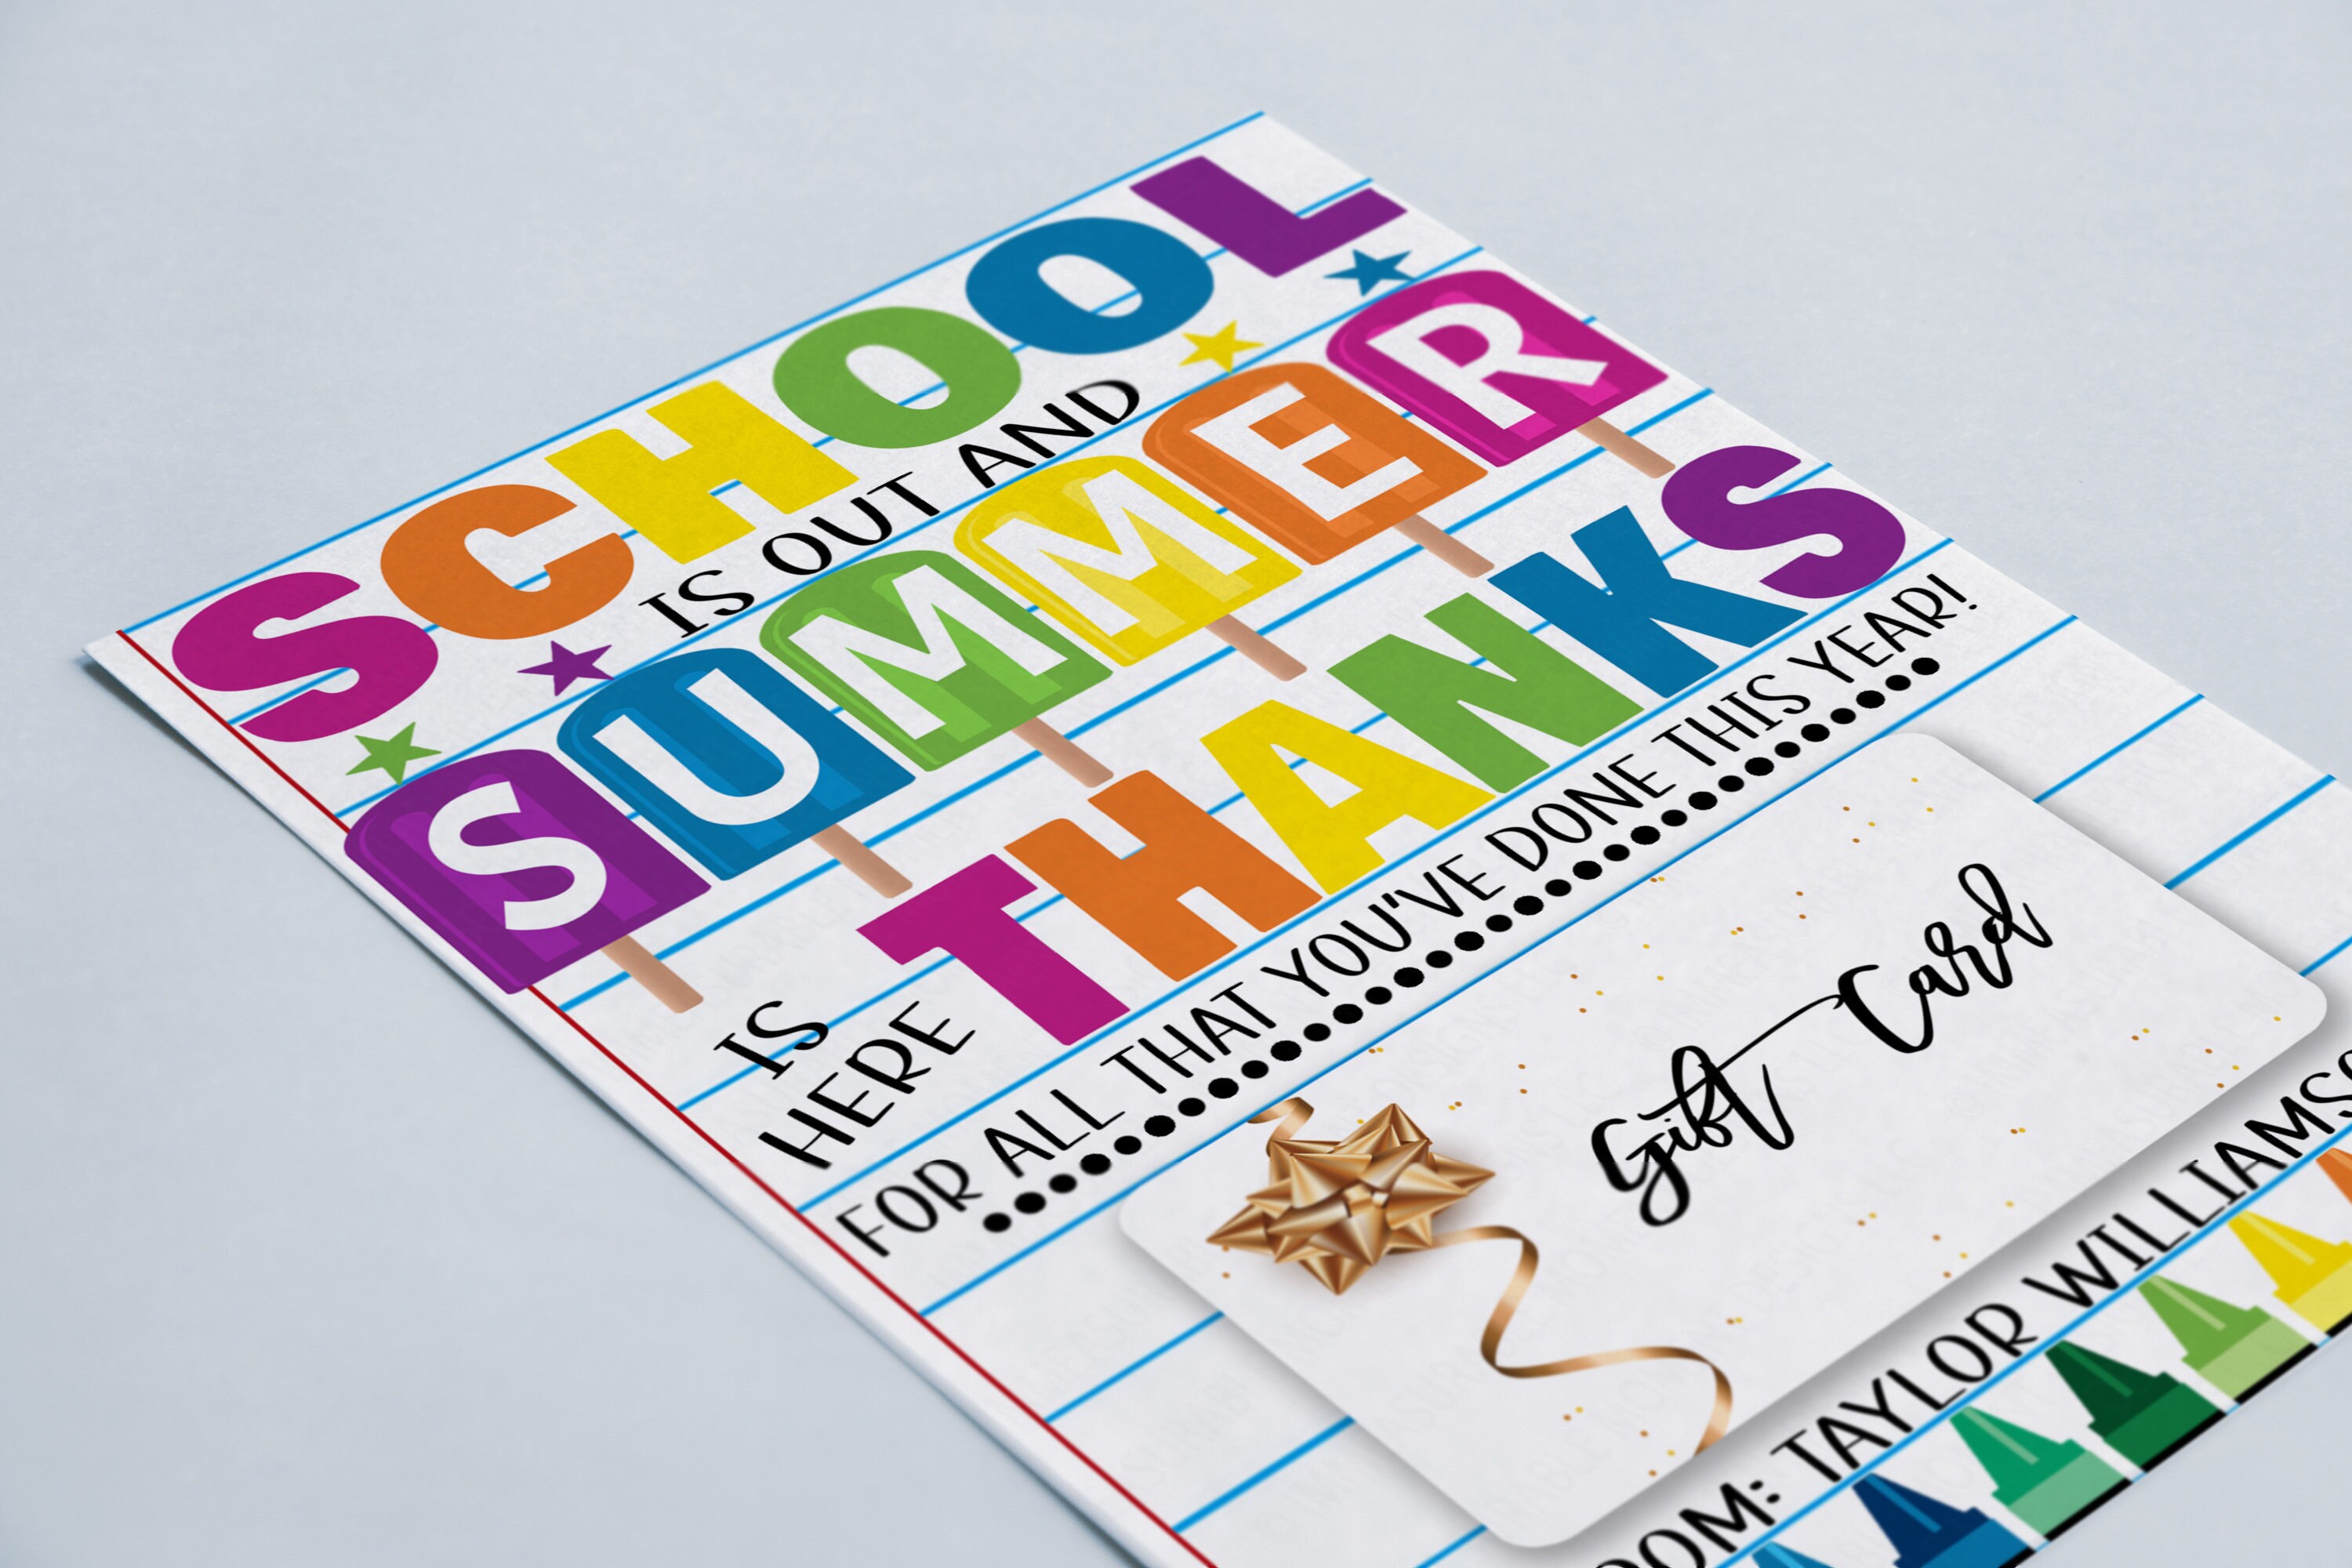 SCHOOL
IS OUT AND
SUMMER
IS HERE
THANKS
FOR ALL THAT YOU'VE DONE THIS YEAR!
Gift Card
TAYLOR